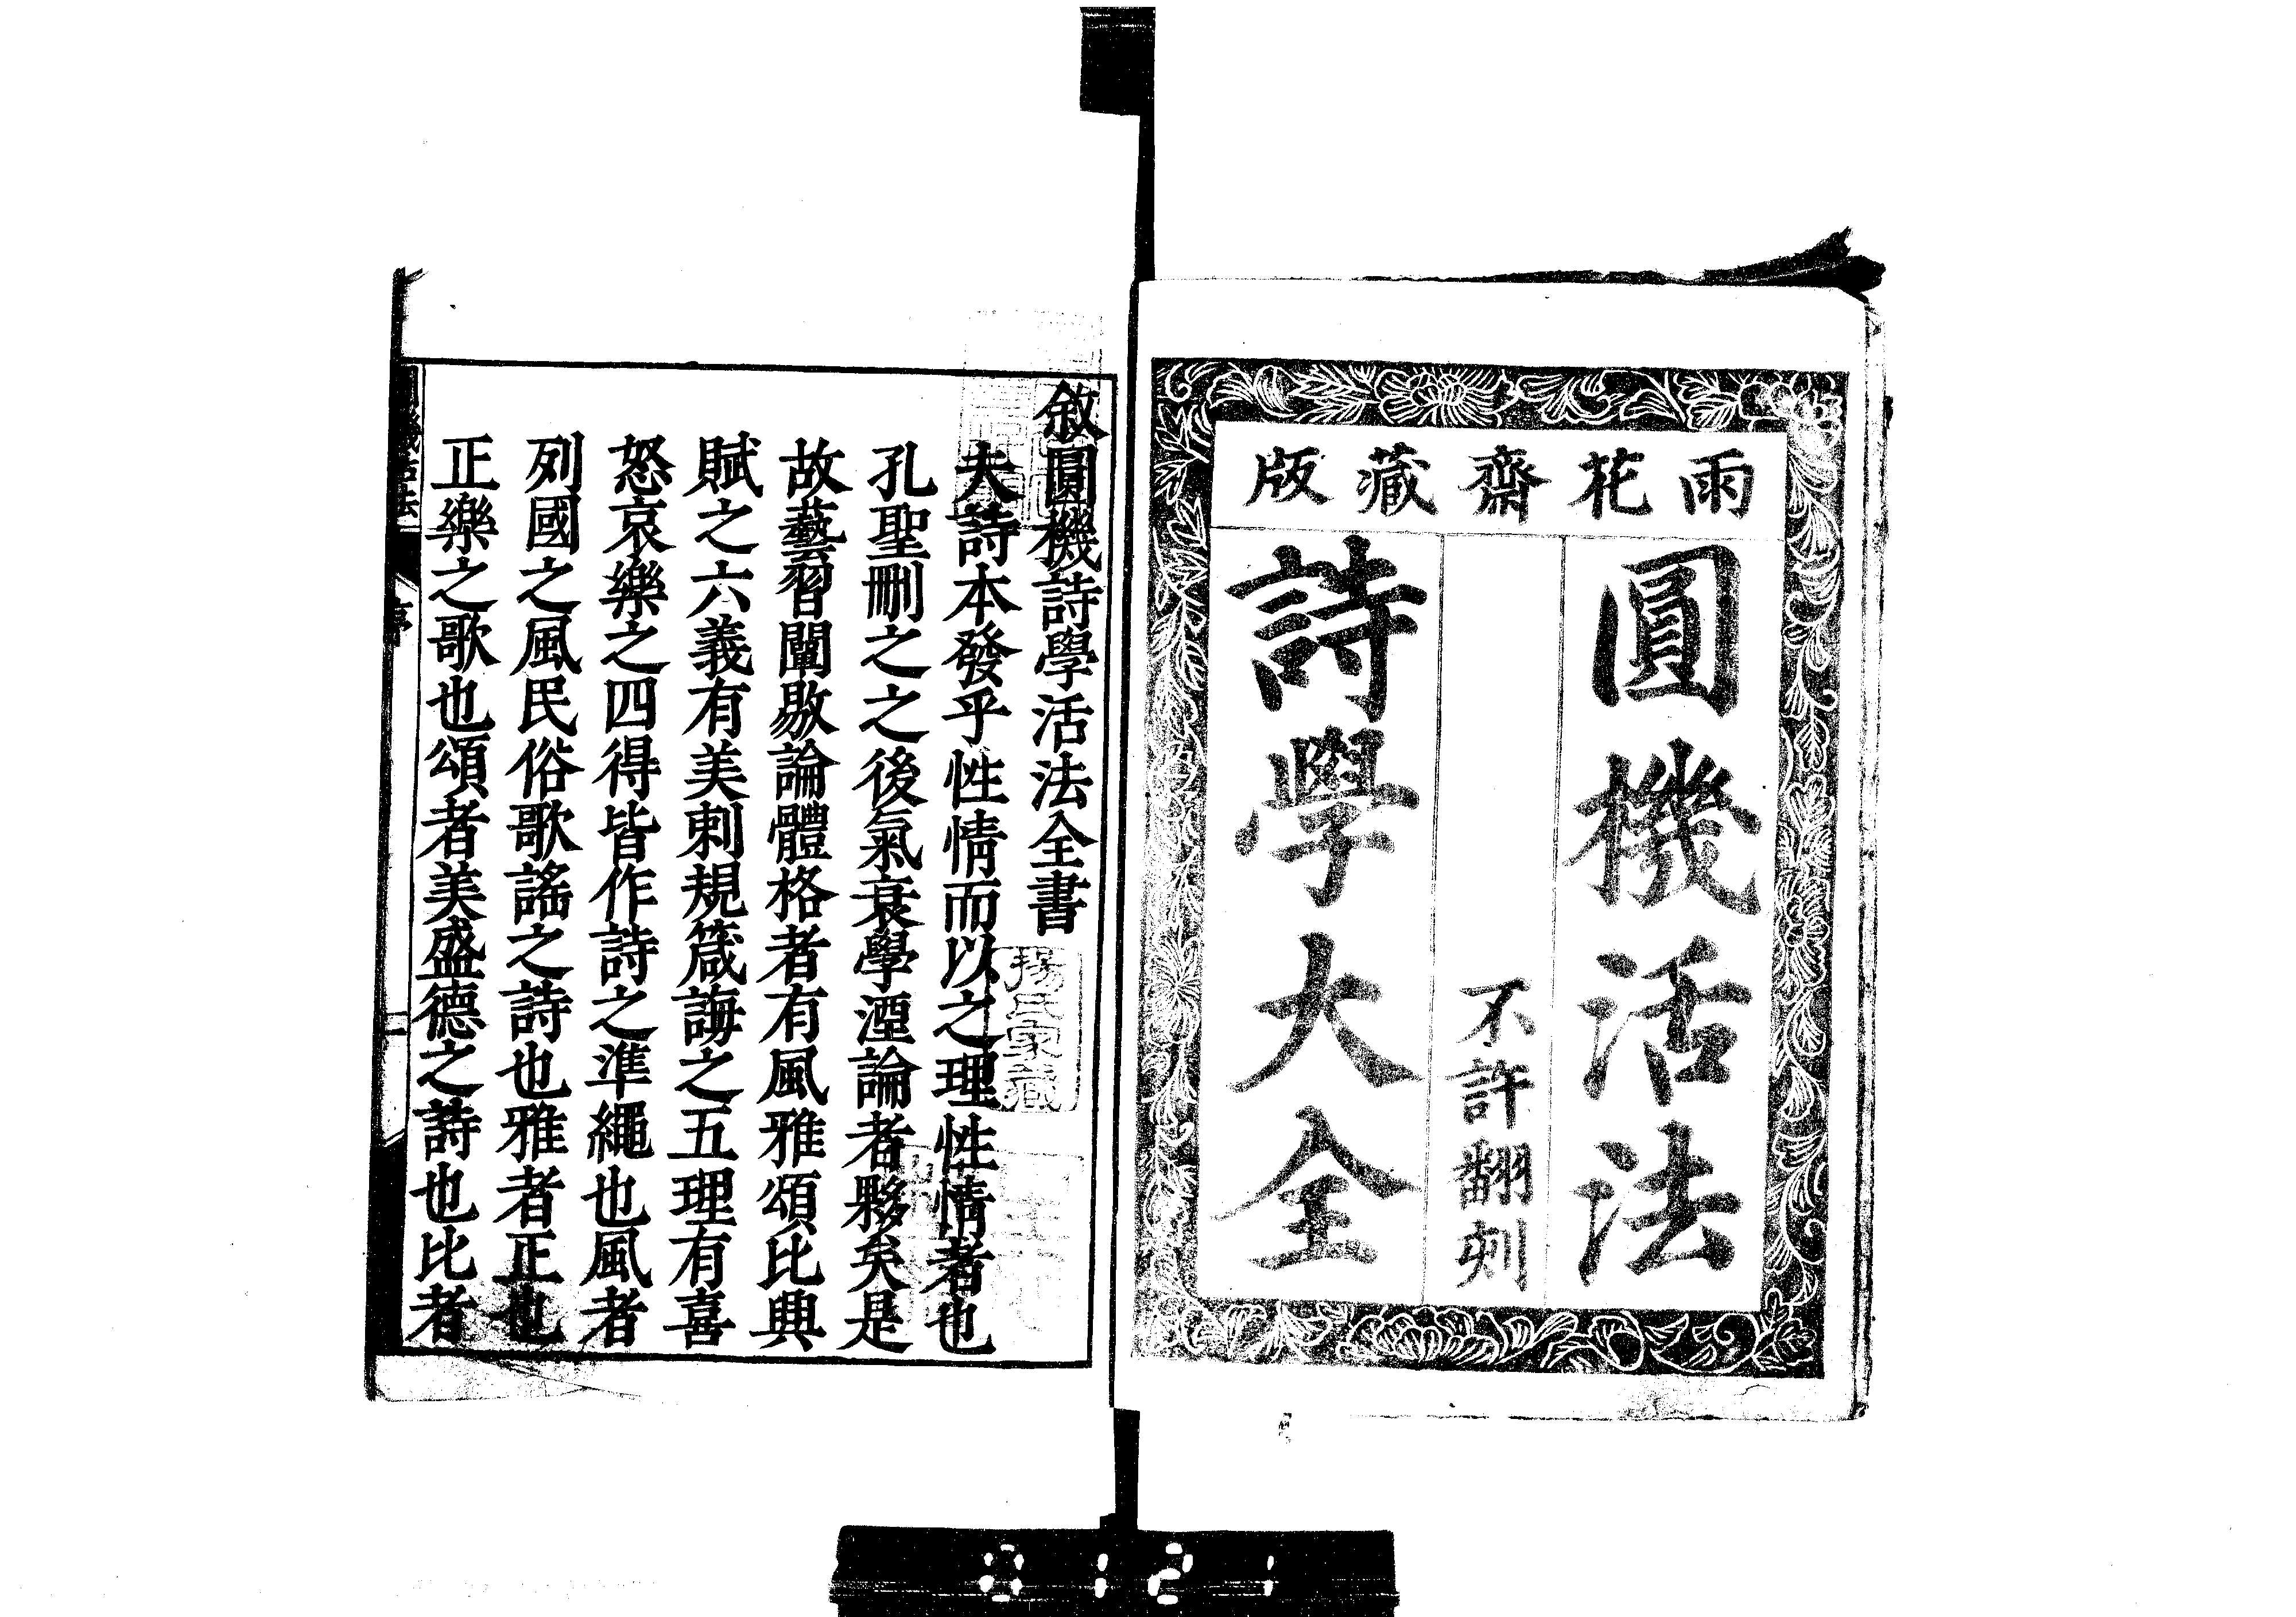 雨花齋藏版
圓機活法
不許翻刻
詩學大全
敘圓機詩學活法全書
楊氏家藏
夫詩本發乎性情而以之理性情者也
孔聖刪之之後氣衰學湮論者夥矣是
故藝習闡敭論體格者有風雅頌比興
賦之六義有美刺規箴誨之五理有喜
怒哀樂之四得皆作詩之準繩也風者
列國之風民俗歌謠之詩也雅者正也
正樂之歌也頌者美盛德之詩也比者
圓機活法
序
一